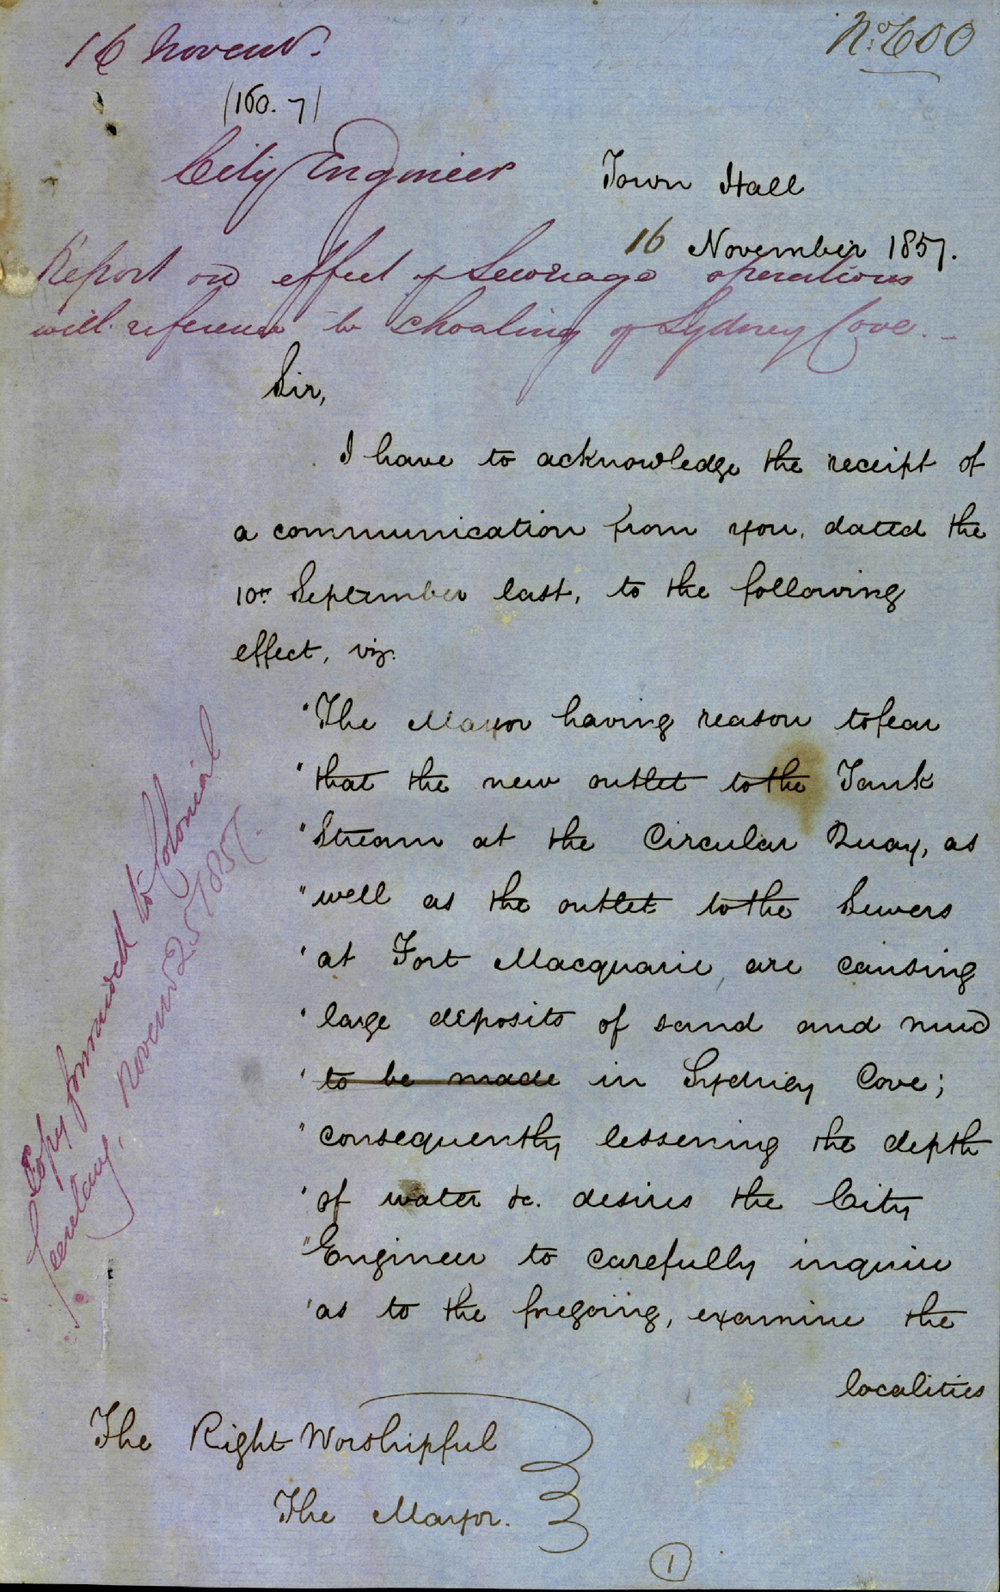 16 Novemr.
No. 600
(160. 7)
City Engineer
Town Hall
16 November 1857.
Report on effect of Sewerage operations
with reference to shoaling of Sydney Cove. -
Sir,
I have to acknowledge the receipt of
a communication from you, dated the
10th September last, to the following
effect, viz.
"The Mayor having reason to fear
"that the new outlet to the Tank
"Stream at the Circular Quay, as
"well as the outlet to the Sewers
"at Fort Macquarie are causing
"large deposits of sand and mud
"to be made in Sydney Cove;
"consequently lessening the depth
"of water &c. desires the City
"Engineer to carefully inquire
"as to the foregoing, examine the
localities
The Right Worshipful
The Mayor.
1
Copy forwarded to Colonial
Secretary, Novemr 25 1857.